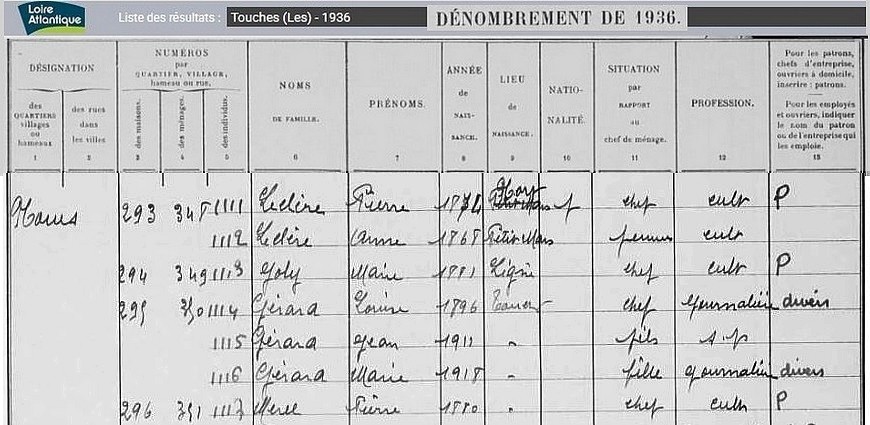 Loire
Atlantique
Liste des résultats : Touches (Les) - 1936
DÉNOMBREMENT DE 1936.
DÉSIGNATION
des QUARTIERS villages ou hameaux
des rues dans les villes
NUMÉROS
par
QUARTIER, VILLAGE,
hameau ou rue.
des maisons.
des ménages.
des individus.
NOMS
DE FAMILLE.
PRÉNOMS.
ANNÉE
de
NAIS-
SANCE.
LIEU
de
NAISSANCE.
NATIO-
NALITÉ.
SITUATION
par
RAPPORT
au
chef de ménage.
PROFESSION.
Pour les patrons,
chefs d'entreprise,
ouvriers à domicile,
inscrire : patrons.
Pour les employés
et ouvriers, indiquer
le nom du patron
ou de l'entreprise qui
les emploie.
1 2 3 4 5 6 7 8 9 10 11 12 13
293 1111 Leclère Pierre f chef cult P
1112 Leclère Anne 1868 Petit Mars femme cult
294 349 1113 Joly Marie 1881 Ligné chef cult P
295 350 1114 Gérard Louise 1896 chef Journalière divers
1115 Gérard Jean 1911 " fils s.p
1116 Gérard Marie 1918 " fille Journalière divers
296 351 1117 Pierre 1880 " chef cult P